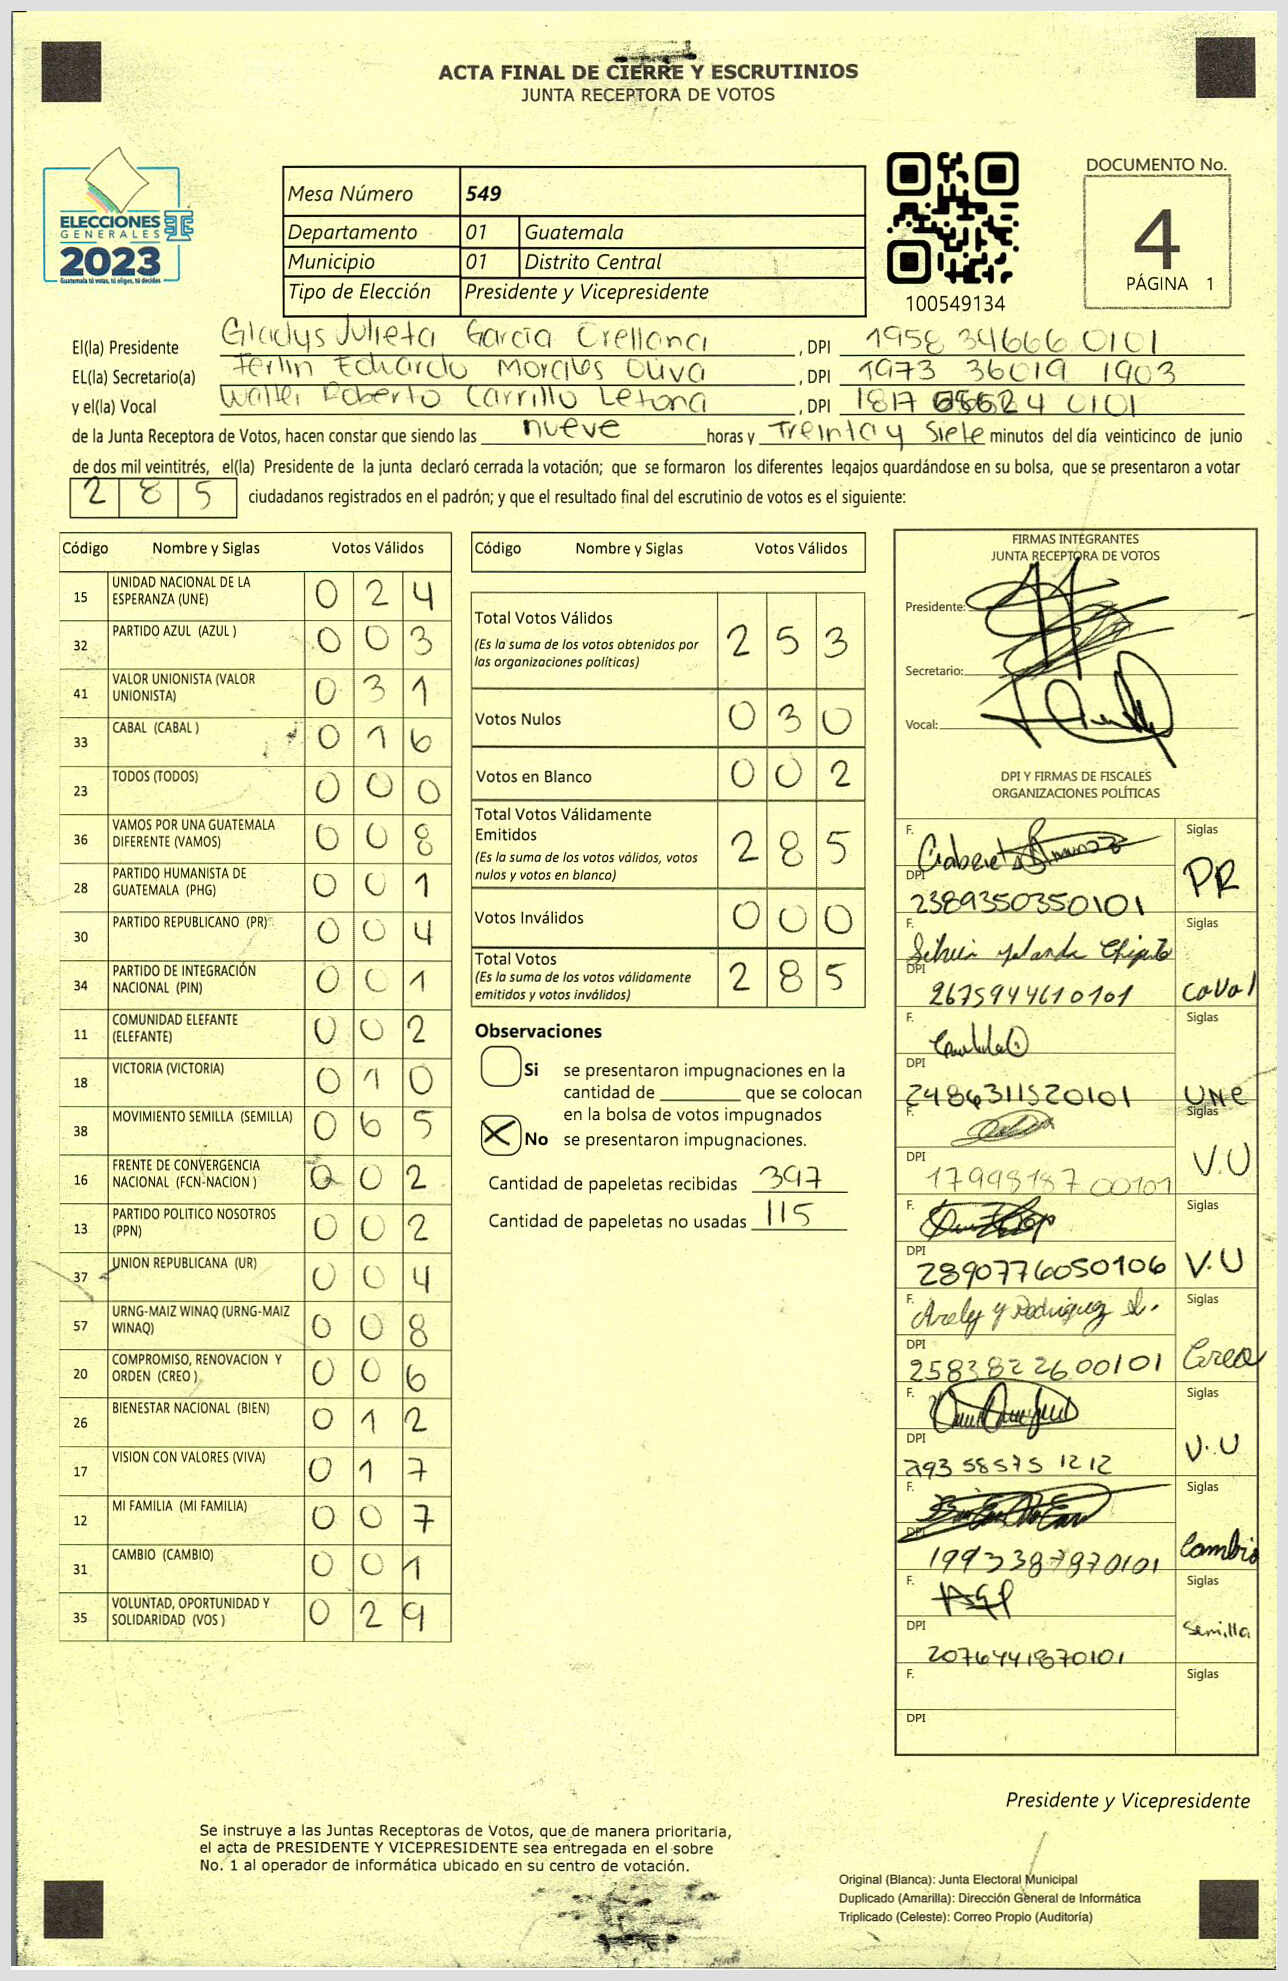 ACTA FINAL DE CIERRE Y ESCRUTINIOS
JUNTA RECEPTORA DE VOTOS
ELECCIONES
GENERALES
2023
Guatemala tú votas, tú eliges, tú decides
Mesa Número 549
Departamento 01 Guatemala
Municipio 01 Distrito Central
Tipo de Elección Presidente y Vicepresidente
100549134
DOCUMENTO No.
4
PÁGINA 1
El(la) Presidente Gladys Julieta García Orellana, DPI 1958 34666 0101
EL(la) Secretario(a) Ferlin Eduardo Morales Oliva, DPI 1973 36019 1903
y el(la) Vocal Walter Roberto Carrillo Letona, DPI 1817 0101
de la Junta Receptora de Votos, hacen constar que siendo las nueve horas y Treinta y Siete minutos del día veinticinco de junio
de dos mil veintitrés, el(la) Presidente de la junta declaró cerrada la votación; que se formaron los diferentes legajos guardándose en su bolsa, que se presentaron a votar
2 8 5 ciudadanos registrados en el padrón; y que el resultado final del escrutinio de votos es el siguiente:
Código Nombre y Siglas Votos Válidos
15 UNIDAD NACIONAL DE LA ESPERANZA (UNE) 0 2 4
32 PARTIDO AZUL (AZUL ) 0 0 3
41 VALOR UNIONISTA (VALOR UNIONISTA) 0 3 1
33 CABAL (CABAL ) 0 1 6
23 TODOS (TODOS) 0 0 0
36 VAMOS POR UNA GUATEMALA DIFERENTE (VAMOS) 0 0 8
28 PARTIDO HUMANISTA DE GUATEMALA (PHG) 0 0 1
30 PARTIDO REPUBLICANO (PR) 0 0 4
34 PARTIDO DE INTEGRACIÓN NACIONAL (PIN) 0 0 1
11 COMUNIDAD ELEFANTE (ELEFANTE) 0 0 2
18 VICTORIA (VICTORIA) 0 1 0
38 MOVIMIENTO SEMILLA (SEMILLA) 0 6 5
16 FRENTE DE CONVERGENCIA NACIONAL (FCN-NACION ) 0 0 2
13 PARTIDO POLITICO NOSOTROS (PPN) 0 0 2
37 UNION REPUBLICANA (UR) 0 0 4
57 URNG-MAIZ WINAQ (URNG-MAIZ WINAQ) 0 0 8
20 COMPROMISO, RENOVACION Y ORDEN (CREO ) 0 0 6
26 BIENESTAR NACIONAL (BIEN) 0 1 2
17 VISION CON VALORES (VIVA) 0 1 7
12 MI FAMILIA (MI FAMILIA) 0 0 7
31 CAMBIO (CAMBIO) 0 0 1
35 VOLUNTAD, OPORTUNIDAD Y SOLIDARIDAD (VOS ) 0 2 9
Código Nombre y Siglas Votos Válidos
Total Votos Válidos 2 5 3
(Es la suma de los votos obtenidos por
las organizaciones políticas)
Votos Nulos 0 3 0
Votos en Blanco 0 0 2
Total Votos Válidamente
Emitidos 2 8 5
(Es la suma de los votos válidos, votos
nulos y votos en blanco)
Votos Inválidos 0 0 0
Total Votos 2 8 5
(Es la suma de los votos válidamente
emitidos y votos inválidos)
Observaciones
Si se presentaron impugnaciones en la
cantidad de ________ que se colocan
en la bolsa de votos impugnados
X No se presentaron impugnaciones.
Cantidad de papeletas recibidas 397
Cantidad de papeletas no usadas 115
FIRMAS INTEGRANTES
JUNTA RECEPTORA DE VOTOS
Presidente:
Secretario:
Vocal:
DPI Y FIRMAS DE FISCALES
ORGANIZACIONES POLÍTICAS
F. Siglas
DPI 2389350350101 PR
F. Silvia Yolanda Siglas
DPI 2675944610101 CaVal
F. Siglas
DPI 2486311520101 UNE
F. Siglas
DPI 17998187 00101 V.U
F. Siglas
DPI 2890776050106 V.U
F. Arely y Rodriguez Siglas
DPI 2583822600101 Creo
F. Siglas
DPI 58575 1212 V.U
F. Siglas
DPI 1993387870101 Cambio
F. Siglas
DPI 2076441870101 Semilla
F. Siglas
DPI
Presidente y Vicepresidente
Se instruye a las Juntas Receptoras de Votos, que de manera prioritaria,
el acta de PRESIDENTE Y VICEPRESIDENTE sea entregada en el sobre
No. 1 al operador de informática ubicado en su centro de votación.
Original (Blanca): Junta Electoral Municipal
Duplicado (Amarilla): Dirección General de Informática
Triplicado (Celeste): Correo Propio (Auditoría)